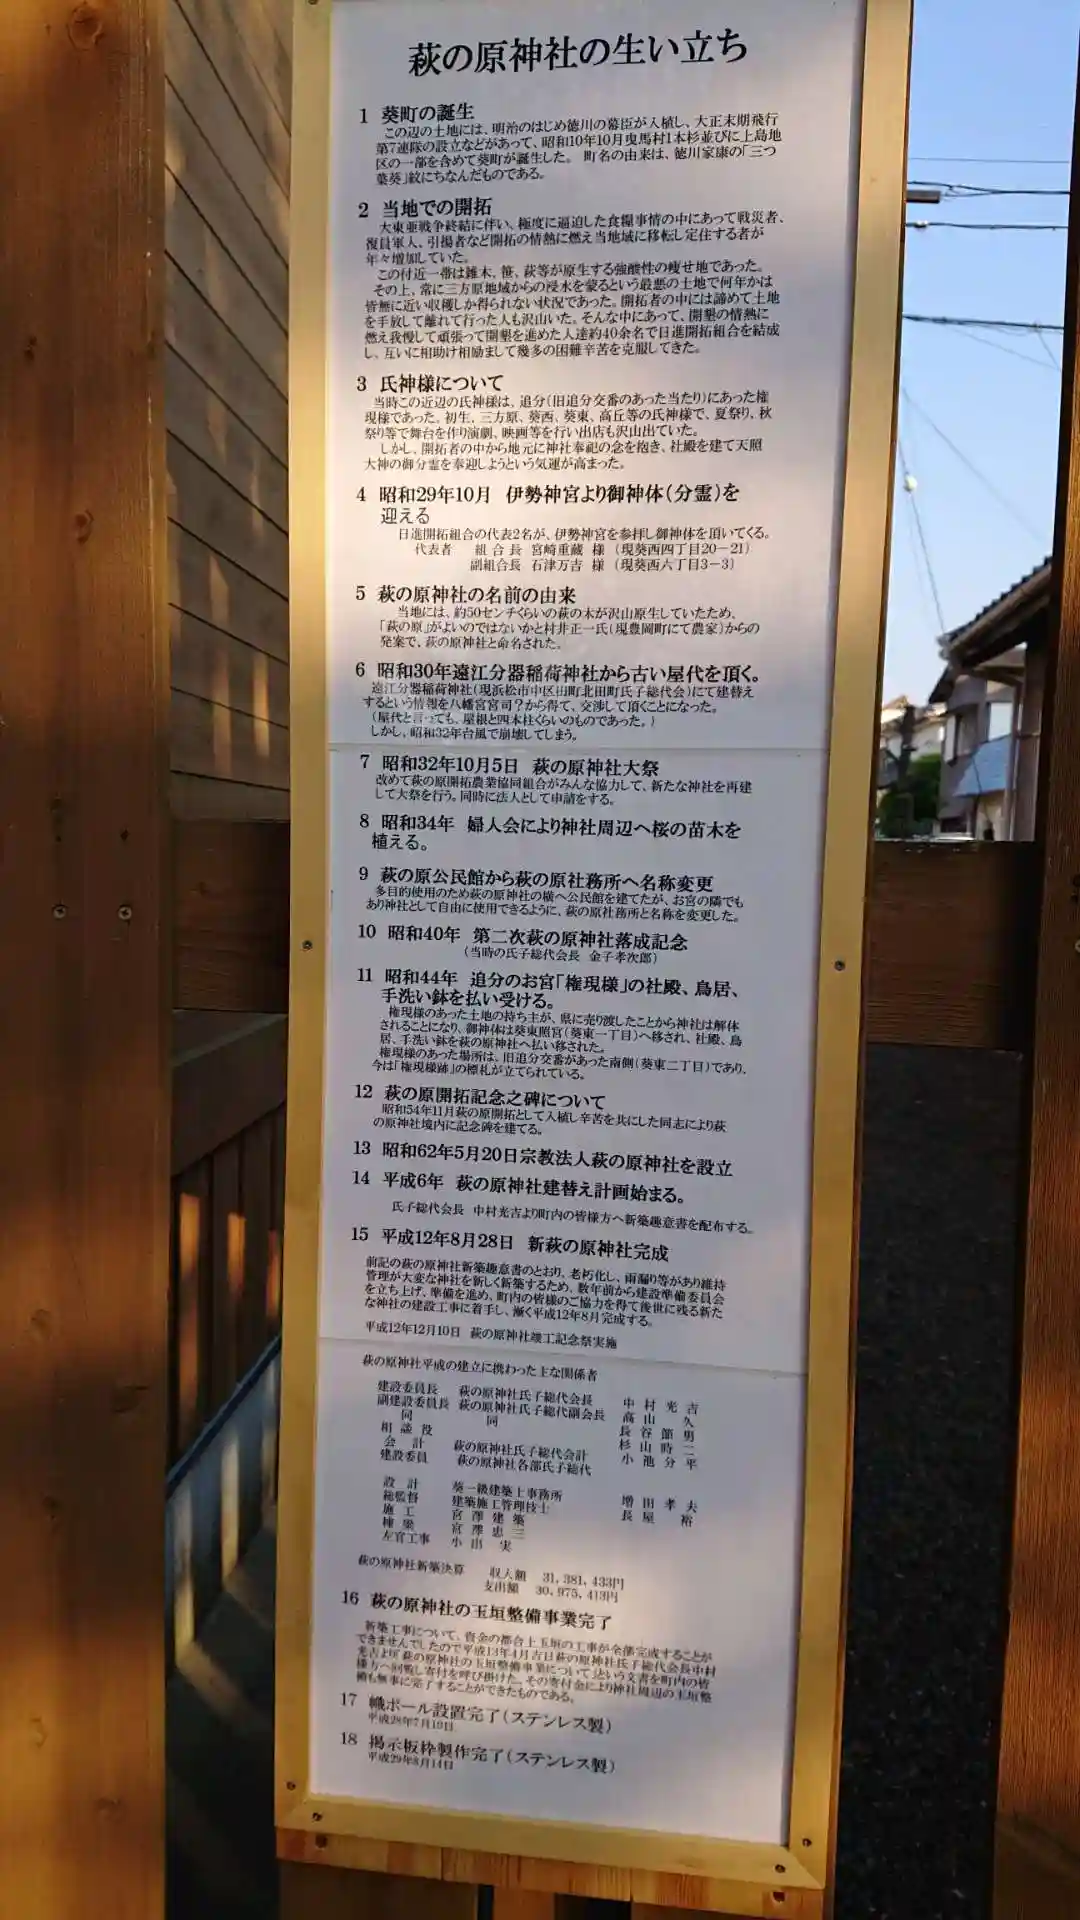 萩の原神社の生い立ち
1 葵町の誕生
この辺の土地には、明治のはじめ徳川の幕臣が入植し、大正末期飛行
第7連隊の設立などがあって、昭和10年10月曳馬村1本杉並びに上島地
区の一部を含めて葵町が誕生した。 町名の由来は、徳川家康の「三つ
葉葵」紋にちなんだものである。
2 当地での開拓
大東亜戦争終結に伴い、極度に逼迫した食糧事情の中にあって戦災者、
復員軍人、引揚者など開拓の情熱に燃え当地域に移転し定住する者が
年々増加していた。
この付近一帯は雑木、笹、萩等が原生する強酸性の痩せ地であった。
その上、常に三方原地域からの浸水を蒙るという最悪の土地で何年かは
皆無に近い収穫しか得られない状況であった。開拓者の中には諦めて土地
を手放して離れて行った人も沢山いた。そんな中にあって、開墾の情熱に
燃え我慢して頑張って開墾を進めた人達約40余名で日進開拓組合を結成
し、互いに相助け相励まして幾多の困難辛苦を克服してきた。
3 氏神様について
当時この近辺の氏神様は、追分(旧追分交番のあった当たり)にあった権
現様であった。初生、三方原、葵西、葵東、高丘等の氏神様で、夏祭り、秋
祭り等で舞台を作り演劇、映画等を行い出店も沢山出ていた。
しかし、開拓者の中から地元に神社奉祀の念を抱き、社殿を建て天照
大神の御分霊を奉迎しようという気運が高まった。
4 昭和29年10月 伊勢神宮より御神体(分霊)を
迎える
日進開拓組合の代表2名が、伊勢神宮を参拝し御神体を頂いてくる。
代表者 組合長 宮崎重蔵 様 (現葵西四丁目20-21)
副組合長 石津万吉 様 (現葵西六丁目3-3)
5 萩の原神社の名前の由来
当地には、約50センチくらいの萩の木が沢山原生していたため、
「萩の原」がよいのではないかと村井正一氏(現豊岡町にて農家)からの
発案で、萩の原神社と命名された。
6 昭和30年遠江分器稲荷神社から古い屋代を頂く。
遠江分器稲荷神社(現浜松市中区田町北田町氏子総代会)にて建替え
するという情報を八幡宮宮司?から得て、交渉して頂くことになった。
(屋代と言っても、屋根と四本柱くらいのものであった。)
しかし、昭和32年台風で崩壊してしまう。
7 昭和32年10月5日 萩の原神社大祭
改めて萩の原開拓農業協同組合がみんな協力して、新たな神社を再建
して大祭を行う。同時に法人として申請をする。
8 昭和34年 婦人会により神社周辺へ桜の苗木を
植える。
9 萩の原公民館から萩の原社務所へ名称変更
多目的使用のため萩の原神社の横へ公民館を建てたが、お宮の隣でも
あり神社として自由に使用できるように、萩の原社務所と名称を変更した。
10 昭和40年 第二次萩の原神社落成記念
(当時の氏子総代会長 金子孝次郎)
11 昭和44年 追分のお宮「権現様」の社殿、鳥居、
手洗い鉢を払い受ける。
権現様のあった土地の持ち主が、県に売り渡したことから神社は解体
されることになり、御神体は葵東照宮(葵東一丁目)へ移され、社殿、鳥
居、手洗い鉢を萩の原神社へ払い移された。
権現様のあった場所は、旧追分交番があった南側(葵東二丁目)であり、
今は「権現様跡」の標札が立てられている。
12 萩の原開拓記念之碑について
昭和54年11月萩の原開拓として入植し辛苦を共にした同志により萩
の原神社境内に記念碑を建てる。
13 昭和62年5月20日宗教法人萩の原神社を設立
14 平成6年 萩の原神社建替え計画始まる。
氏子総代会長 中村光吉より町内の皆様方へ新築趣意書を配布する。
15 平成12年8月28日 新萩の原神社完成
前記の萩の原神社新築趣意書のとおり、老朽化し、雨漏り等があり維持
管理が大変な神社を新しく新築するため、数年前から建設準備委員会
を立ち上げ、準備を進め、町内の皆様のご協力を得て後世に残る新た
な神社の建設工事に着手し、漸く平成12年8月完成する。
平成12年12月10日 萩の原神社竣工記念祭実施
萩の原神社平成の建立に携わった主な関係者
建設委員長 萩の原神社氏子総代会長 中村光吉
副建設委員長 萩の原神社氏子総代副会長 高山 久
同 同 長谷節男
相談役 杉山時二
会計 萩の原神社氏子総代会計 小池分平
建設委員 萩の原神社各部氏子総代
設計 葵一級建築士事務所 増田孝夫
総監督 建築施工管理技士 長屋 裕
施工 宮澤建築
棟梁 宮澤忠三
左官工事 小出 実
萩の原神社新築決算 収入額 31,381,433円
支出額 30,975,413円
16 萩の原神社の玉垣整備事業完了
新築工事について、資金の都合上玉垣の工事が全部完成することが
できませんでしたので平成13年4月吉日萩の原神社氏子総代会長中村
光吉より「萩の原神社の玉垣整備事業について」という文書を町内の皆
様方へ回覧し寄付を呼び掛けた。その寄付金により神社周辺の玉垣整
備も無事に完了することができたものである。
17 幟ポール設置完了(ステンレス製)
平成28年7月19日
18 掲示板枠製作完了(ステンレス製)
平成29年8月14日